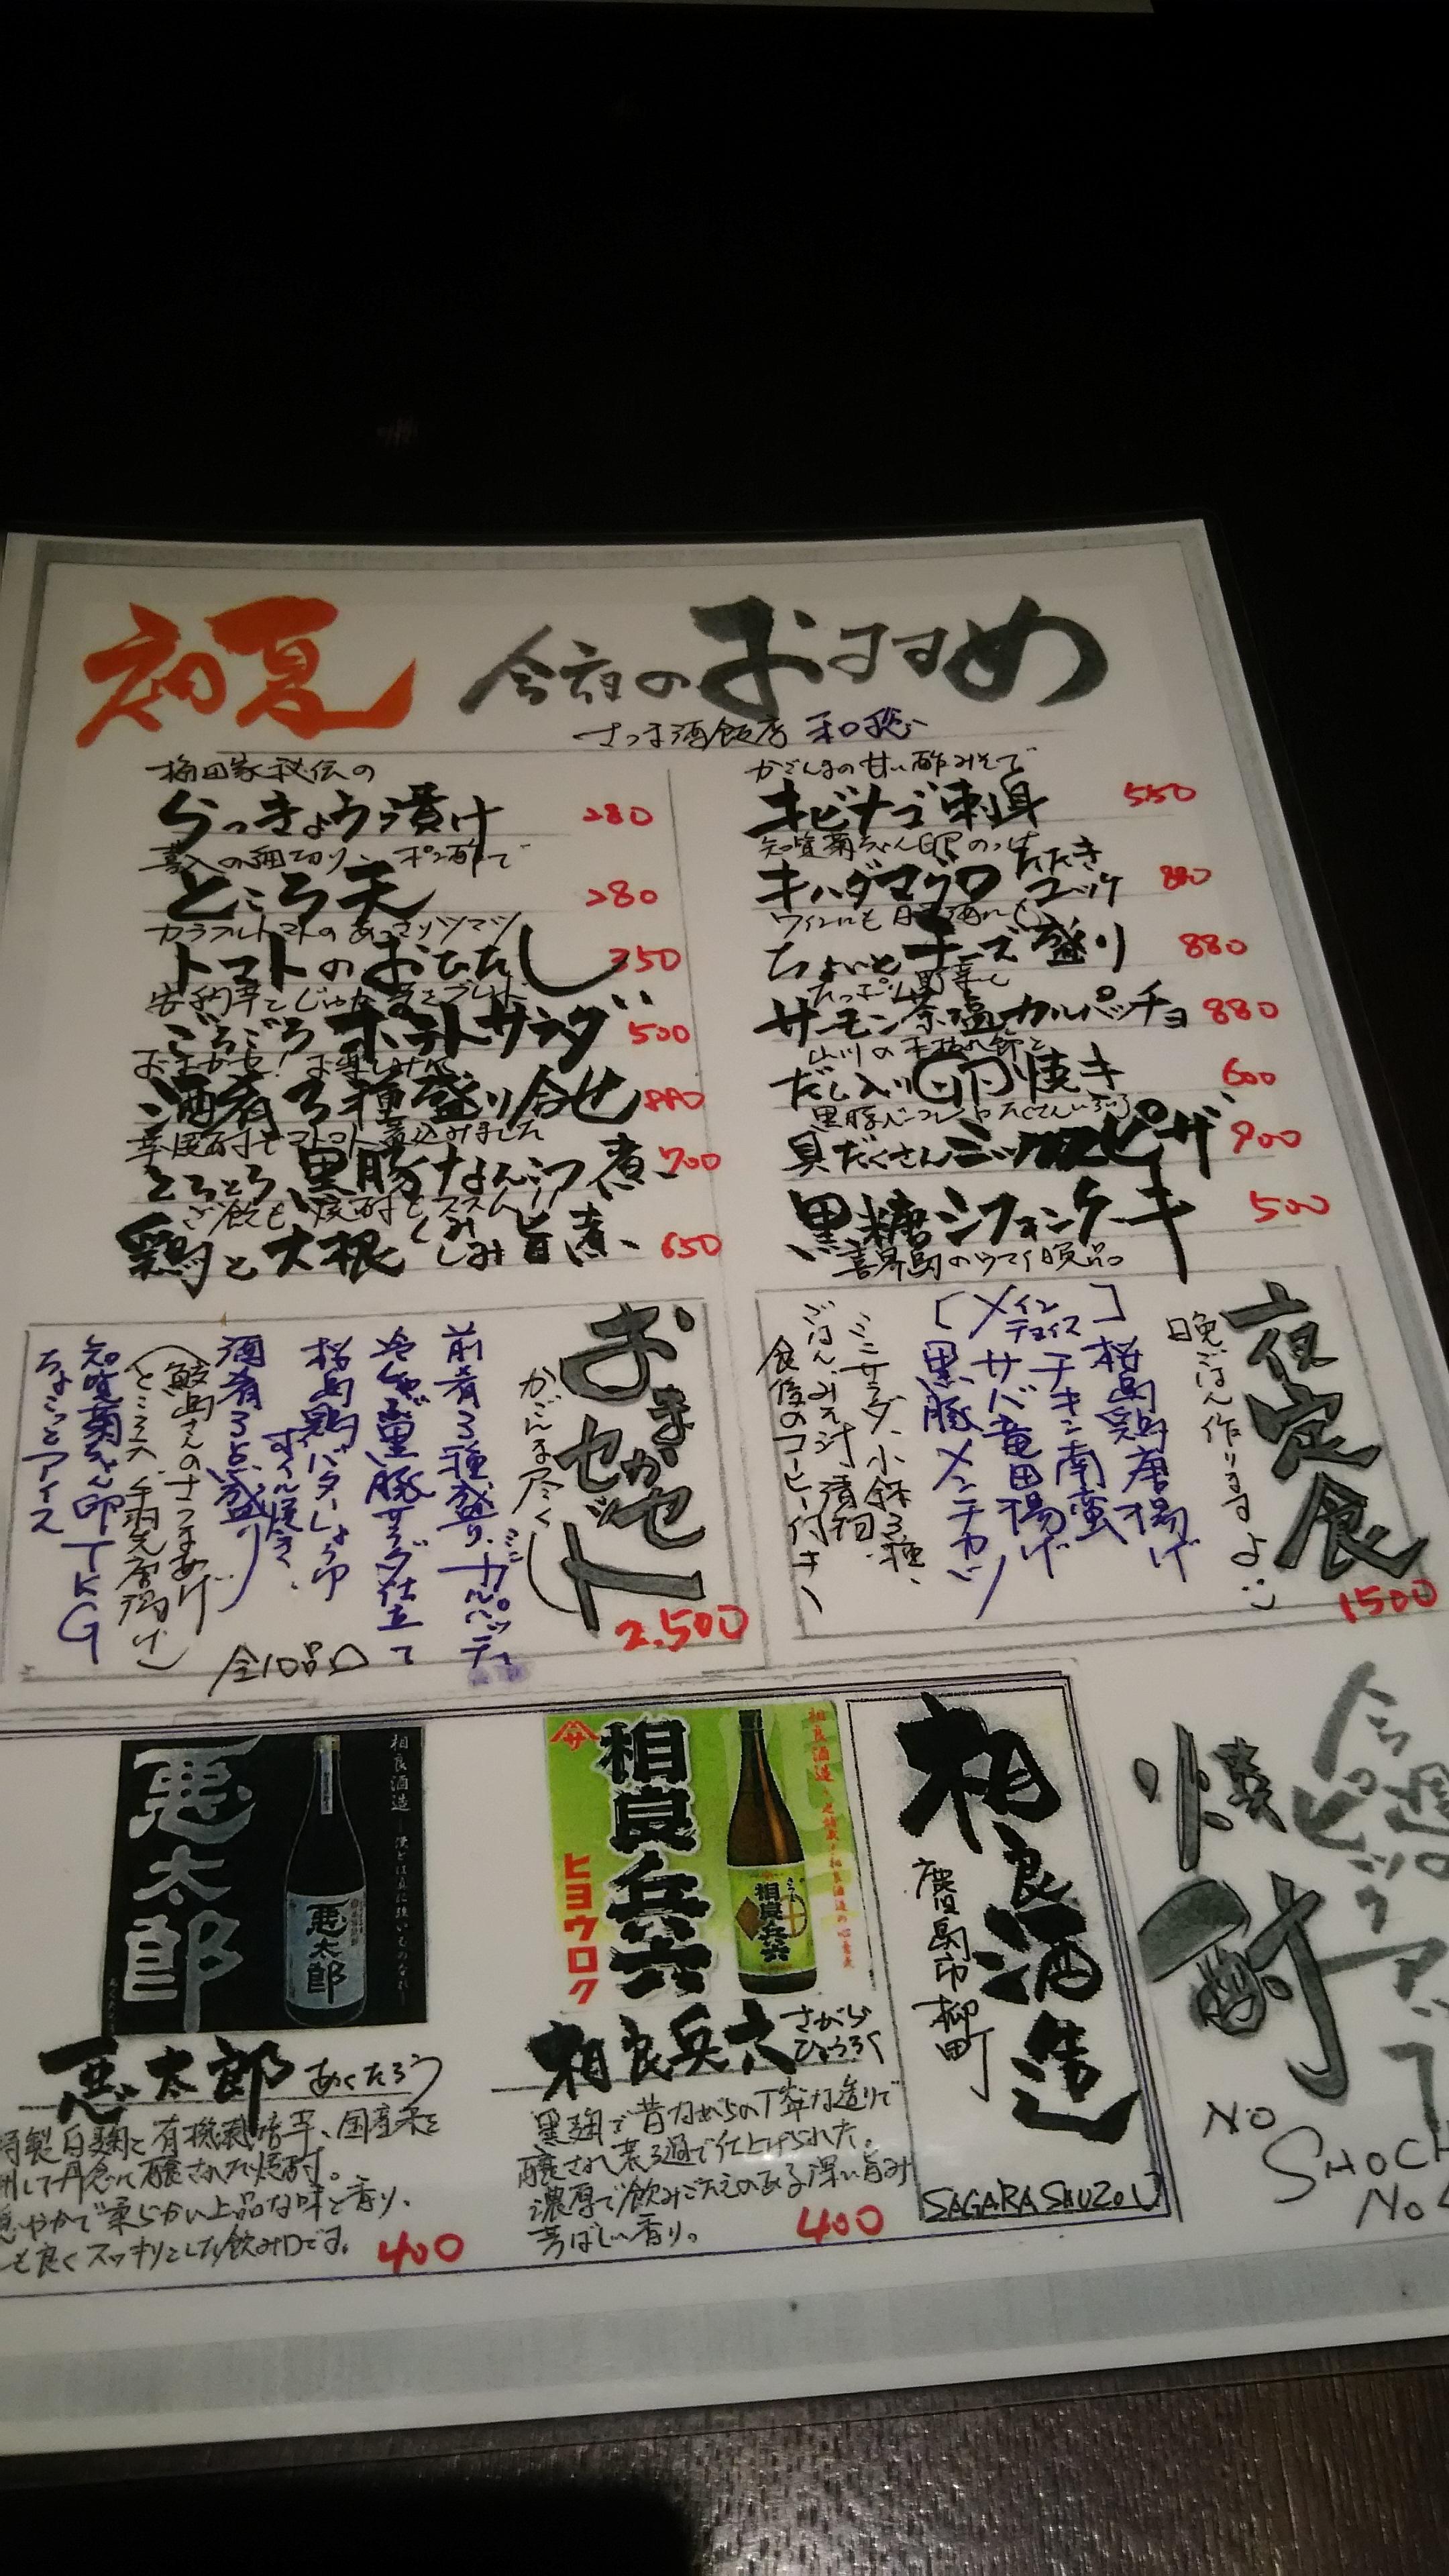 初夏 今夜のおすすめ
さつま酒飯店 和総
梅田家秘伝の
らっきょう漬け 280
喜入の細切り、ポン酢で
ところ天 280
カラフルトマトのあっさりツマツ
トマトのおひたし 350
安納芋とじゃが芋をブレンド
ごろごろポテトサラダ 500
おまかせ!お楽しみに
酒肴3種盛り合せ 880
芋焼酎でコトコト煮込みました
とろとろ黒豚なんこつ煮 700
ご飯も焼酎もススム!!
鶏と大根しみしみ旨煮 650
かごんまの甘い酢みそで
キビナゴ刺身 550
知覧菊ちゃん卵のっけ
キハダマグロたたきユッケ 880
ワインにも日本酒にも
ちょいとチーズ盛り 880
たっぷり野菜と
サーモン茶塩カルパッチョ 880
山川の本枯れ節と
だし入り卵焼き 600
黒豚ベーコンやたくさんいろいろ
具だくさんミックスピザ 900
黒糖シフォンケーキ 500
喜界島のウマイ逸品。
おまかセセット
かごんま尽くし
2.500
前肴3種盛り、ミニカルパッチョ
冷しゃぶ黒豚サラダ仕立て
桜島鶏バターしょう油
すてーき焼き、
酒肴3点盛り
(鮫島さんのさつまあげ
ところ天、手羽先唐揚げ)
知覧菊ちゃん卵TKG
ちょこっとアイス
全10品
夜定食
晩ごはん作りますよ:)
1500
[メインチョイス]
桜島鶏唐揚げ
チキン南蛮
サバ竜田揚げ
黒豚メンチカツ
ミニサラダ、小鉢3種、
ごはん、みそ汁、漬物、
食後のコーヒー付き
今週の
ピックアップ
焼酎
NO SHOCH
NO
相良酒造
鹿児島市柳町
SAGARA SHUZOU
相良兵六
ヒヨウロク
相良兵六 さがらひょうろく
黒麹で昔ながらの丁寧な造りで
醸され荒ろ過で仕上げられた。
濃厚で飲みごたえのある深い旨み
芳ばしい香り。 400
悪太郎
相良酒造
悪太郎 あくたろう
特製白麹と有機栽培芋、国産米を
用して丹念に醸された焼酎。
穏やかで柔らかい上品な味と香り、
も良くスッキリとした飲み口です。 400